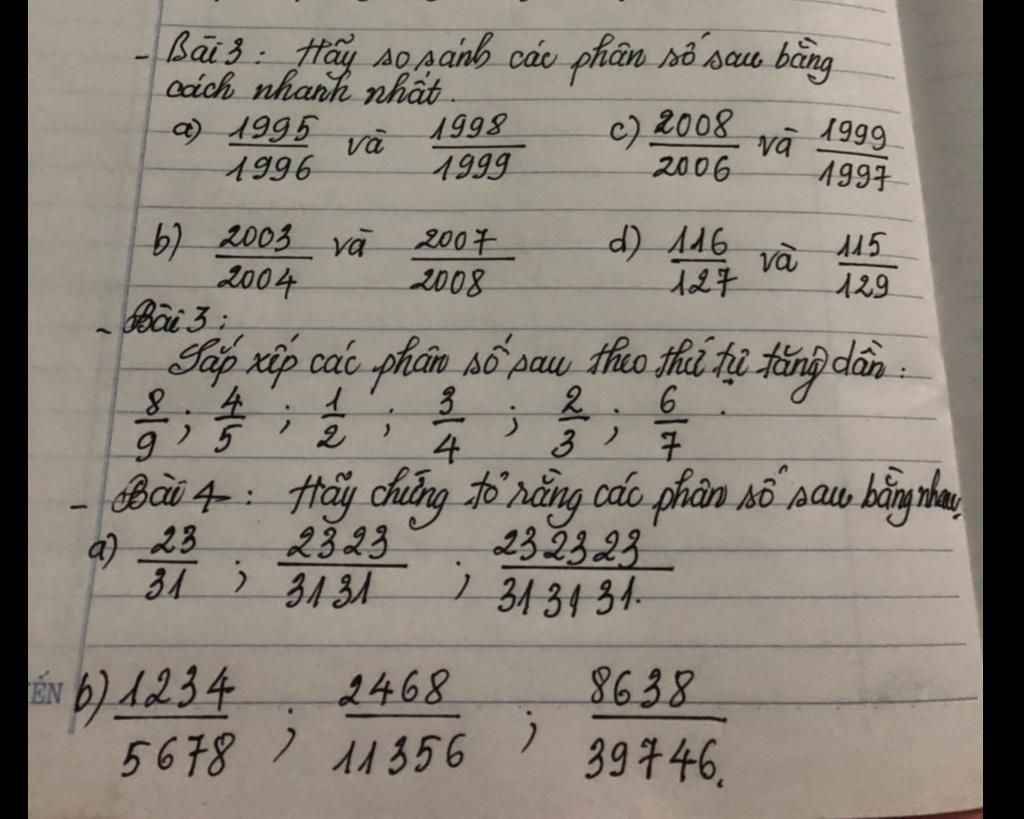 - Bài 3 : Hãy so sánh các phân số sau bằng
cách nhanh nhất.
a) 1995/1996 và 1998/1999 c) 2008/2006 và 1999/1997
b) 2003/2004 và 2007/2008 d) 116/127 và 115/129
- Bài 3 :
Sắp xếp các phân số sau theo thứ tự tăng dần :
8/9 ; 4/5 ; 1/2 ; 3/4 ; 2/3 ; 6/7 .
- Bài 4 : Hãy chứng tỏ rằng các phân số sau bằng nhau.
a) 23/31 ; 2323/3131 ; 232323/313131.
ẾN
b) 1234/5678 ; 2468/11356 ; 8638/39746.